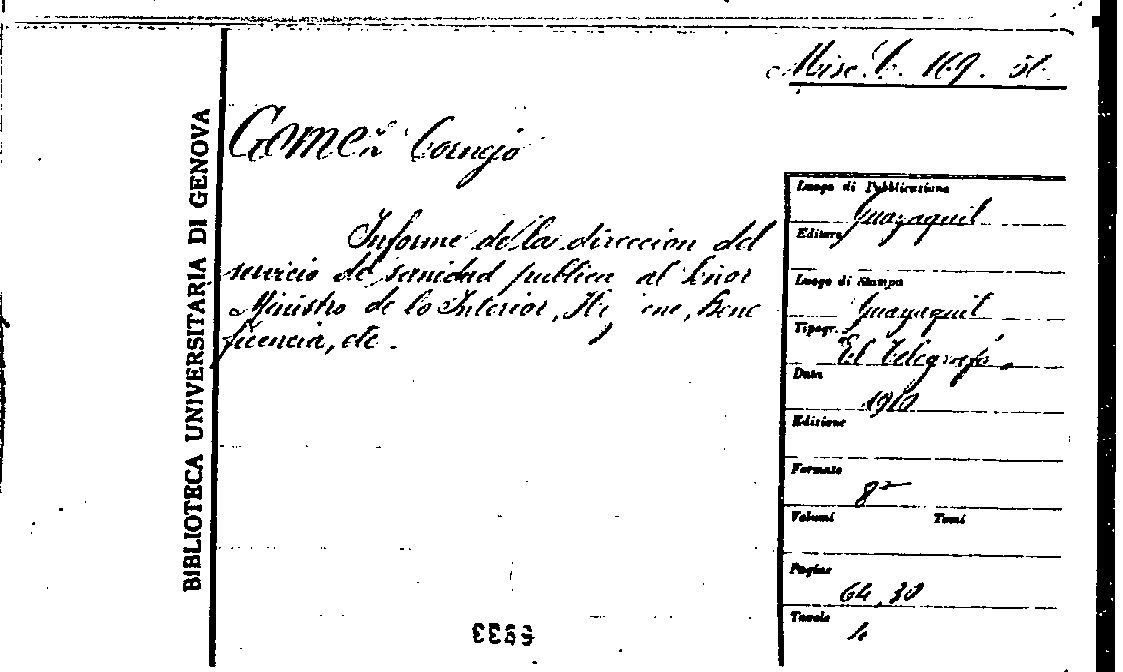 Misc. b. 169. 51
BIBLIOTECA UNIVERSITARIA DI GENOVA
Gomez Cornejo
Informe de la direccion del
servicio de sanidad publica al Señor
Ministro de lo Interior, Hijiene, Bene
ficencia, etc.
Luogo di Pubblicazione
Guayaquil
Editore
Luogo di Stampa
Guayaquil
Tipogr.
El Telegrafo
Data
1910
Edizione
Formato
8°
Volumi Tomi
Pagine
64, 30
Tavole